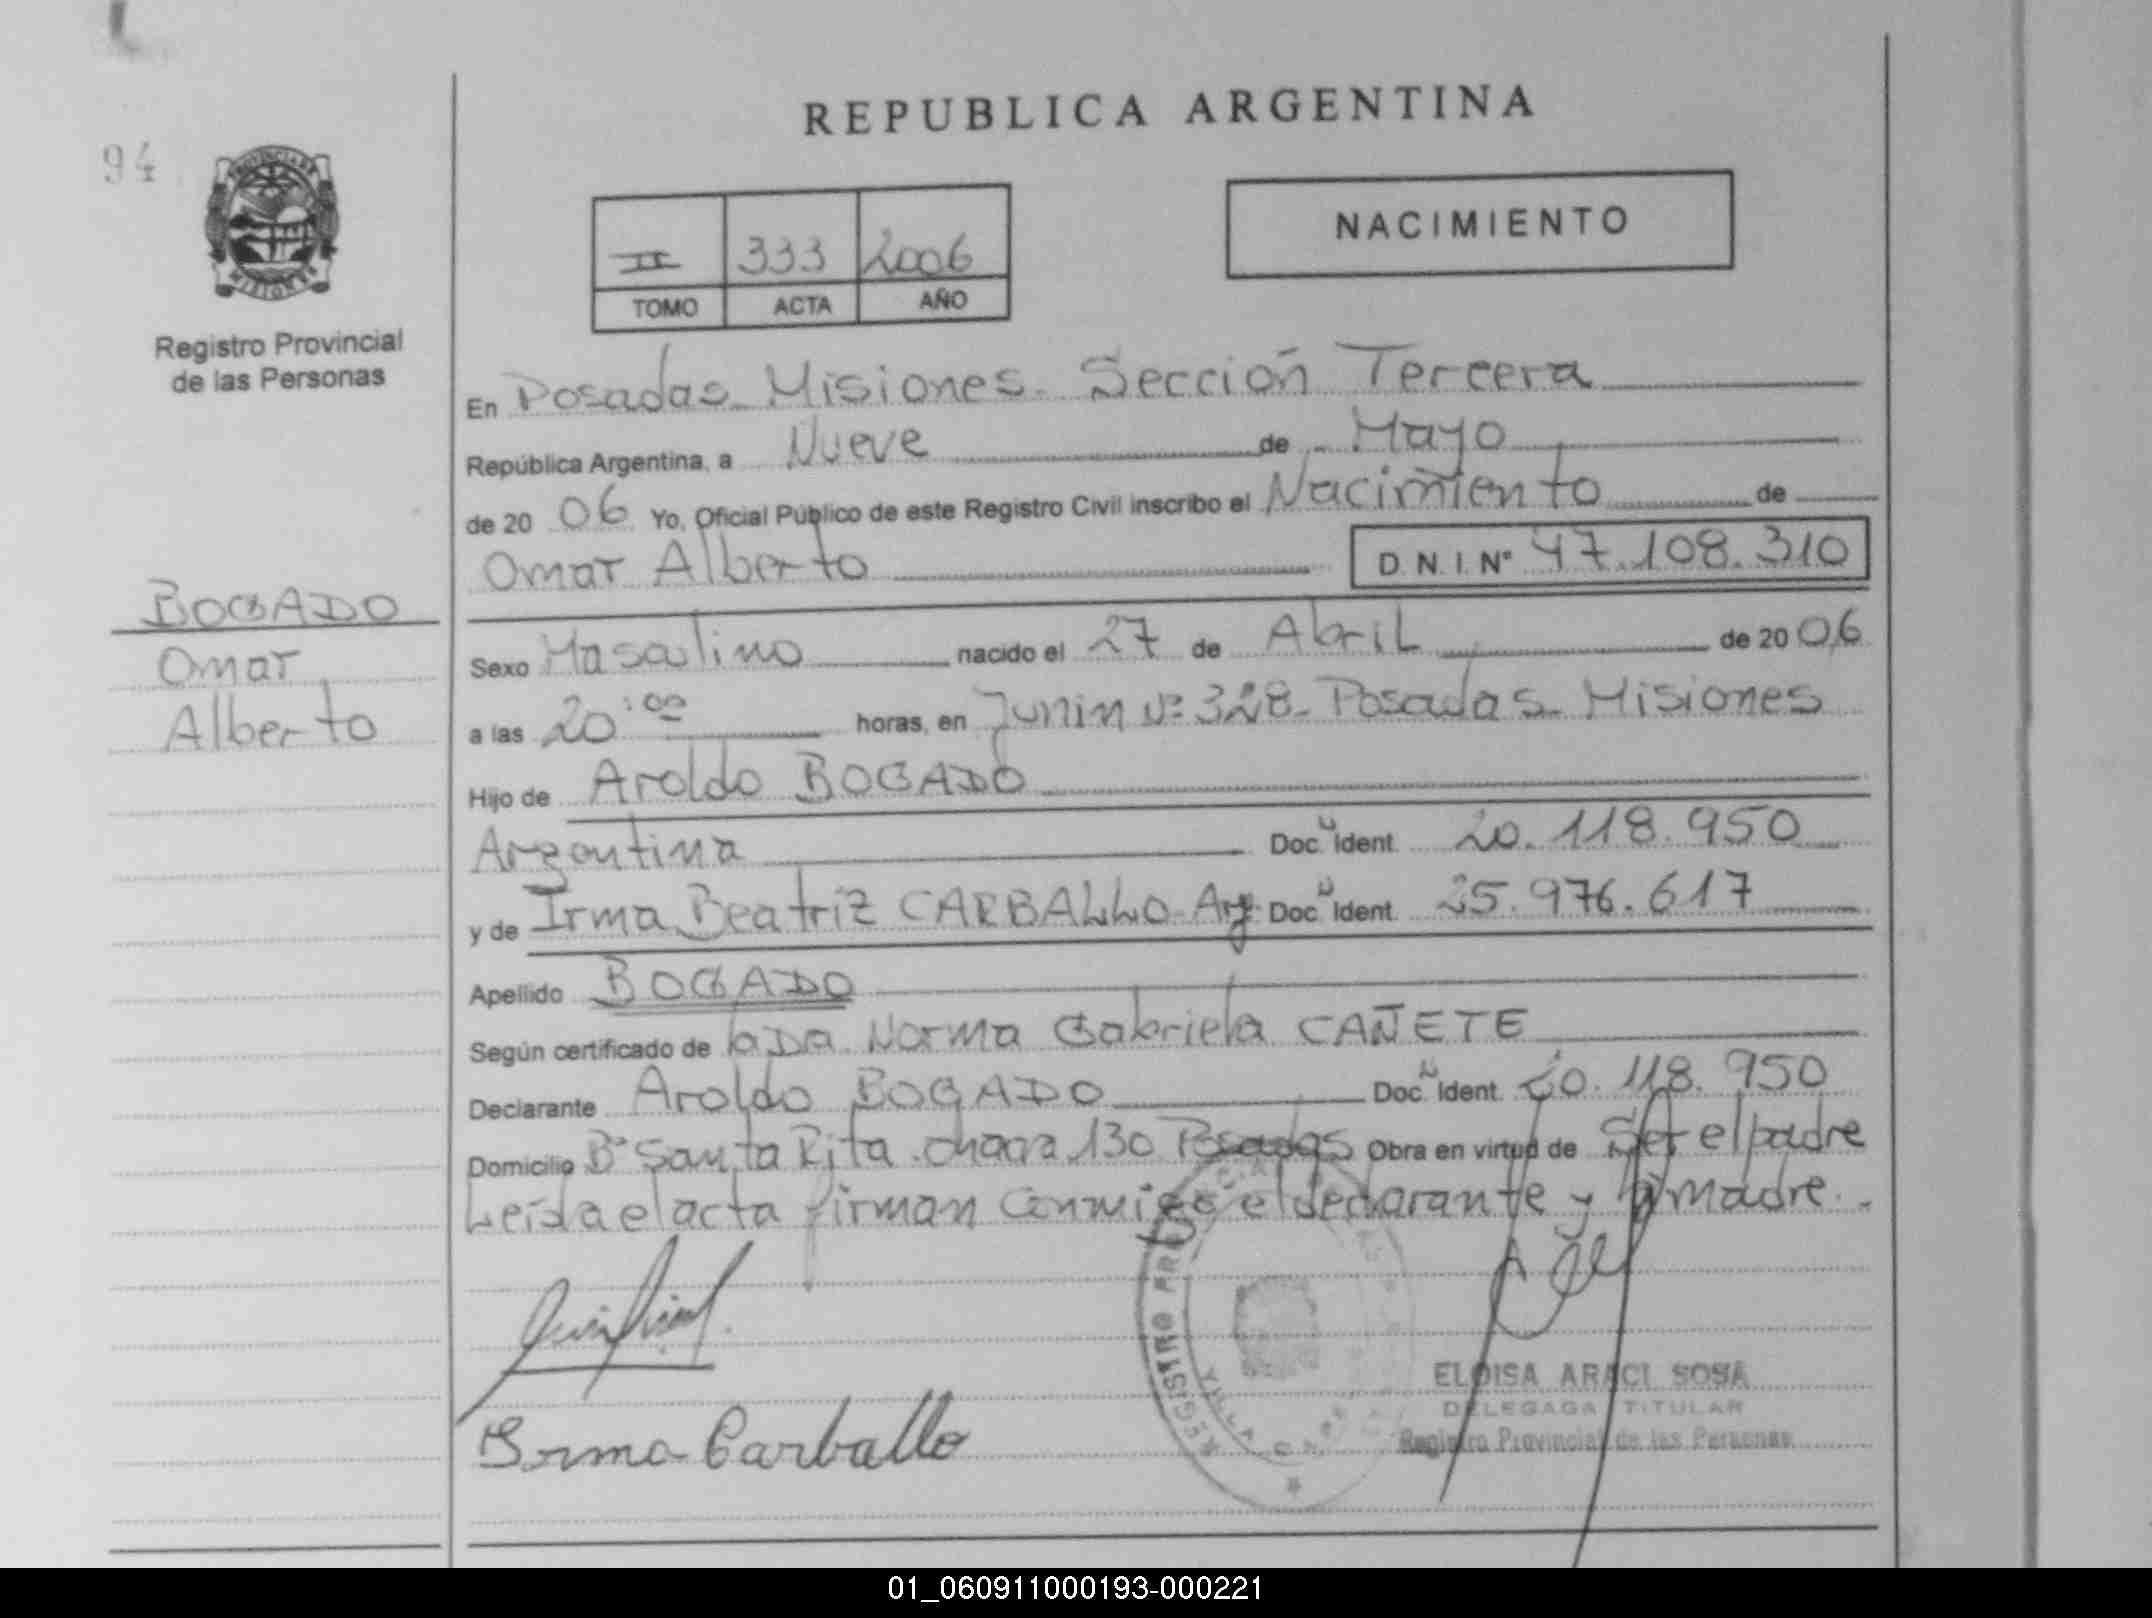 REPUBLICA ARGENTINA
94
PROVINCIA DE
MISIONES
Registro Provincial
de las Personas
II 333 2006
TOMO ACTA AÑO
NACIMIENTO
En Posadas Misiones. Sección Tercera
República Argentina, a Nueve de Mayo
de 20 06 Yo, Oficial Público de este Registro Civil inscribo el Nacimiento de
Omar Alberto D.N.I. Nº 47.108.310
BOGADO
Omar
Alberto
Sexo Masculino nacido el 27 de Abril de 20 06
a las 20:00 horas, en Junin Nº 328 - Posadas - Misiones
Hijo de Aroldo BOGADO
Argentina Doc. Ident. 20.118.950
y de Irma Beatriz CARBALLO - Arg. Doc. Ident. 25.976.617
Apellido BOGADO
Según certificado de la Da. Norma Gabriela CAÑETE
Declarante Aroldo BOGADO Doc. Ident. 20.118.950
Domicilio Bº Santa Rita. chacra 130 Posadas Obra en virtud de Ser el padre
Leída el acta firman conmigo el declarante y la madre.
Irma Carballo
REGISTRO
VILLA
ELOISA ARACI SOSA
DELEGADA TITULAR
Registro Provincial de las Personas
01_060911000193-000221